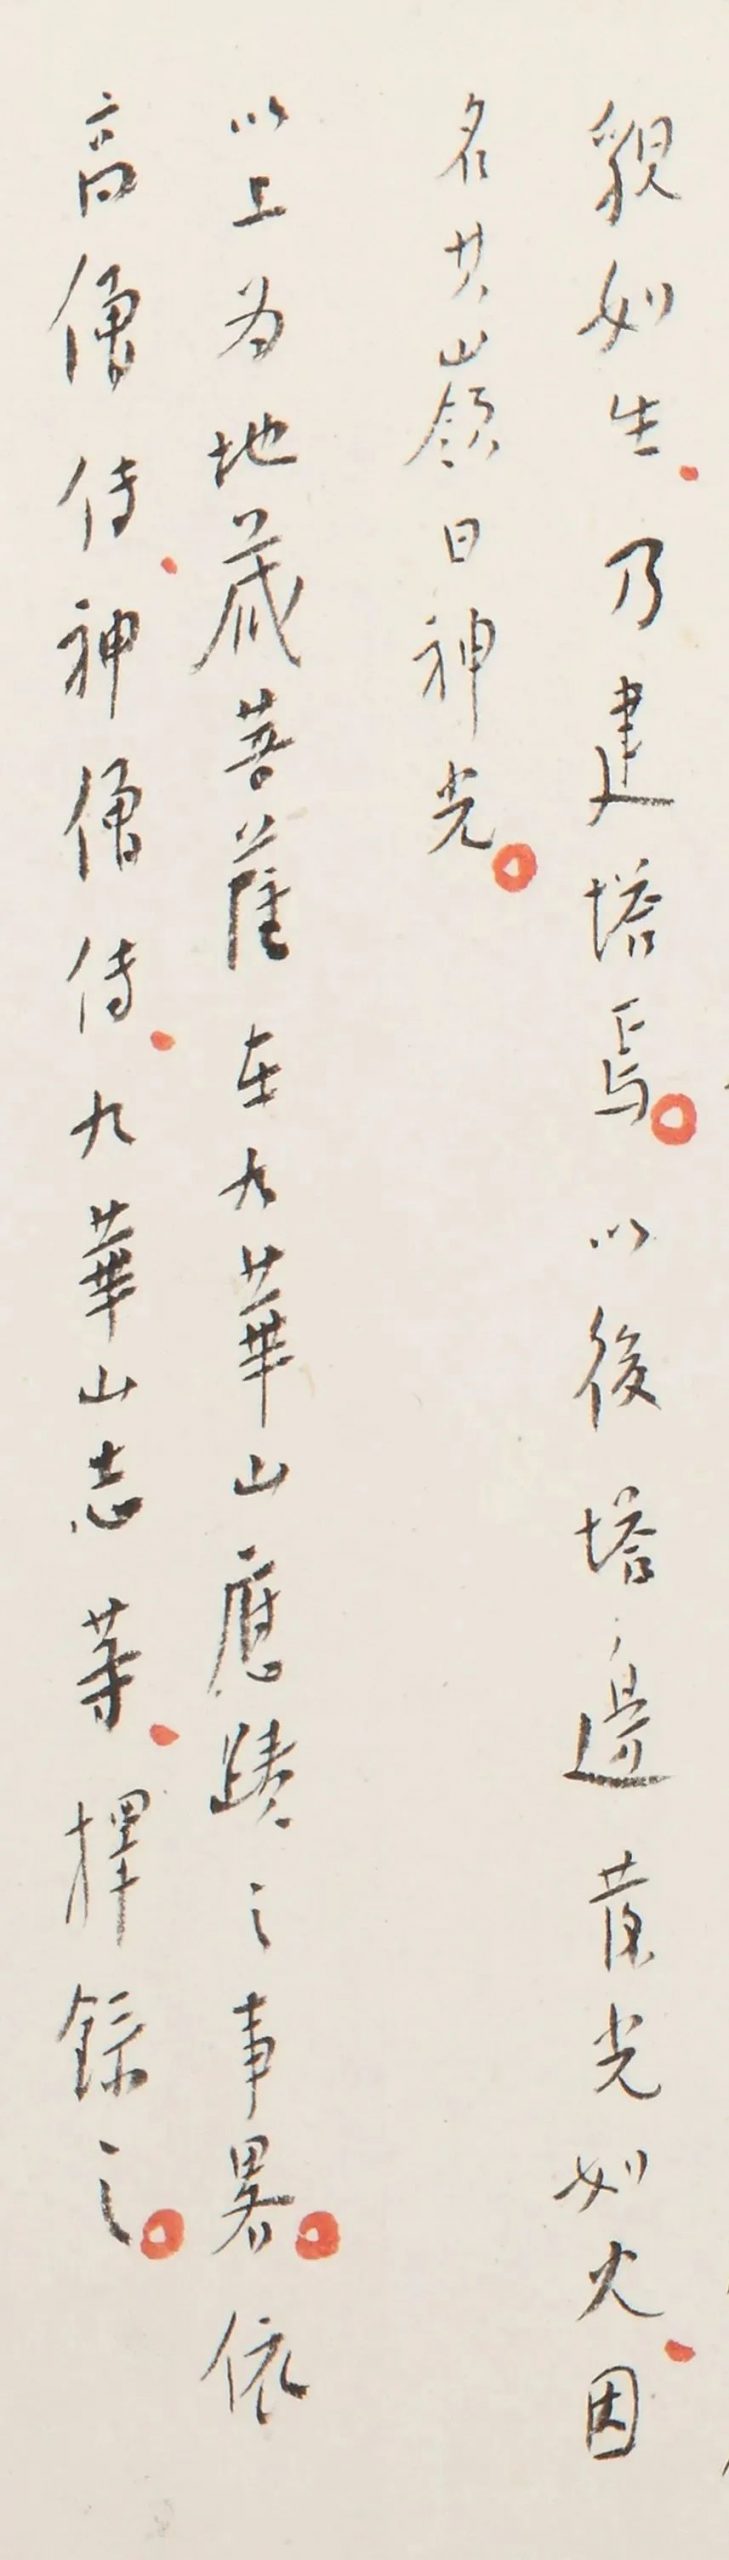 貌如生乃建塔焉以後塔邊發光如火因
名其嶺曰神光
以上為地藏菩薩在九華山應蹟之事畧依
高僧傳神僧傳九華山志等擇錄之